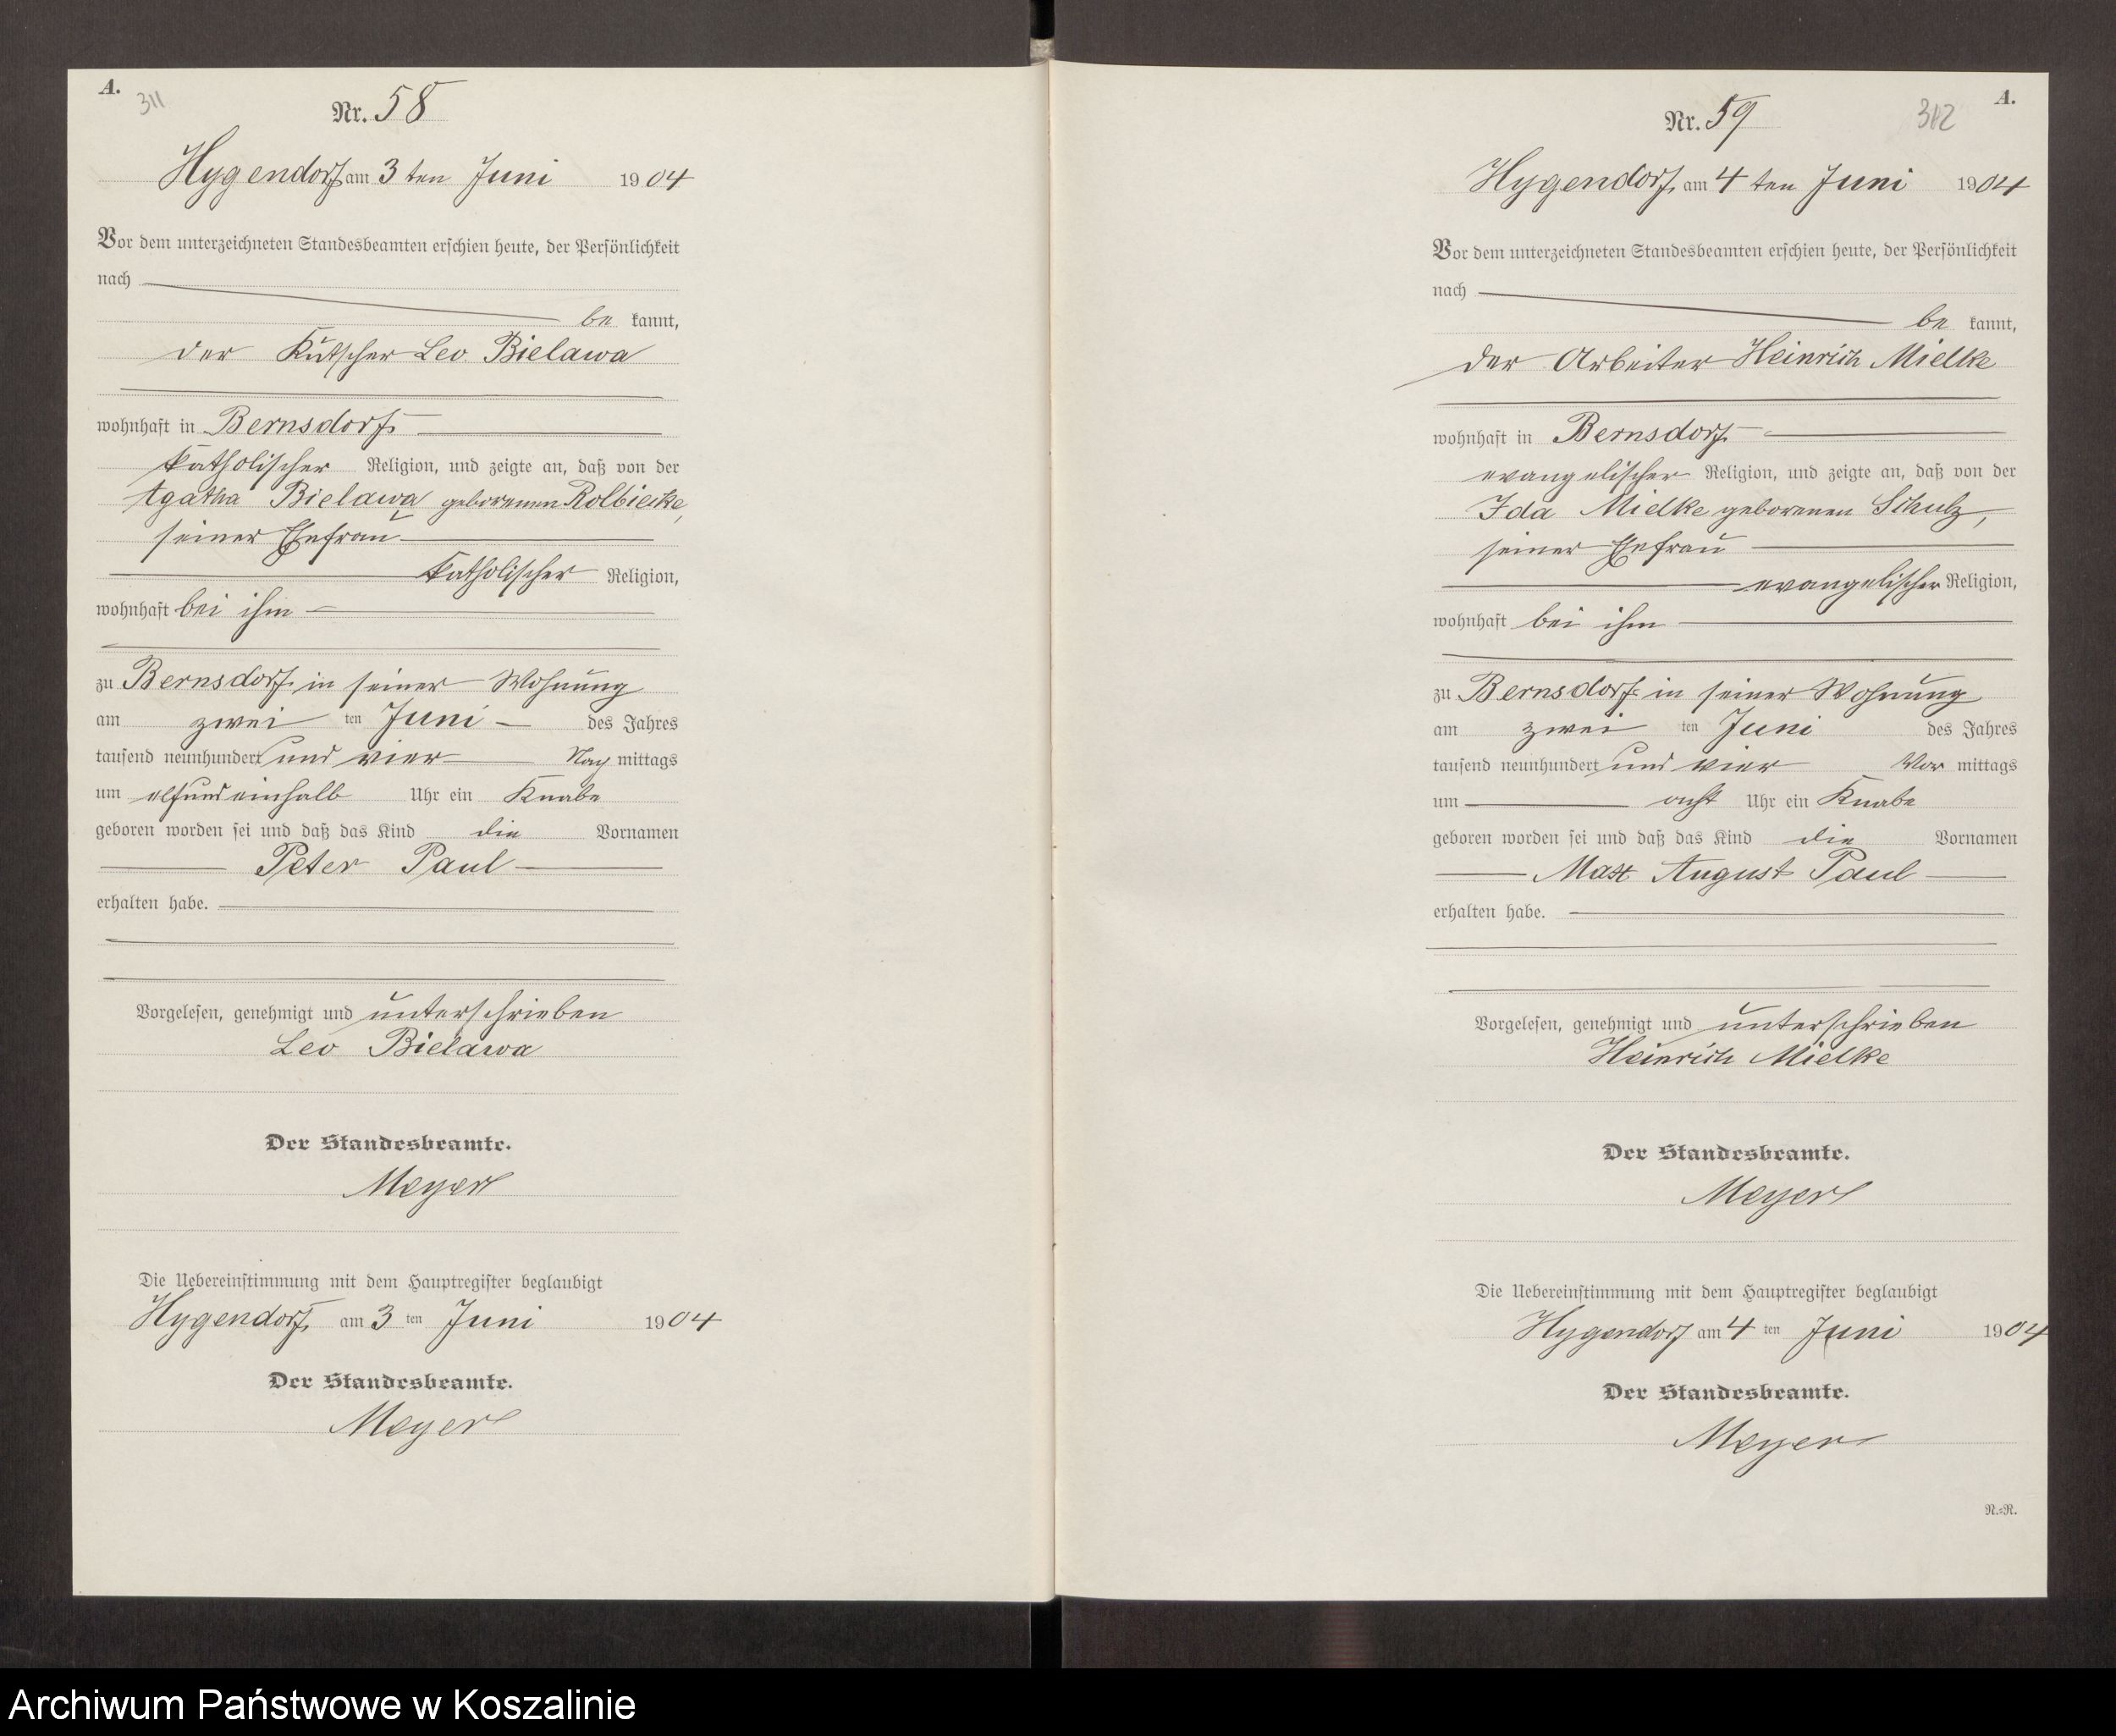 A.
311
Nr. 58
Hygendorf am 3 ten Juni 1904
Vor dem unterzeichneten Standesbeamten erschien heute, der Persönlichkeit
nach
be kannt,
der Kutscher Leo Bielawa
wohnhaft in Bernsdorf
katholischer Religion, und zeigte an, daß von der
Agatha Bielawa geborenen Rolbiecke,
seiner Ehefrau
katholischer Religion,
wohnhaft bei ihm
zu Bernsdorf in seiner Wohnung
am zwei ten Juni des Jahres
tausend neunhundert und vier Nach mittags
um elfundeinhalb Uhr ein Knabe
geboren worden sei und daß das Kind die Vornamen
Peter Paul
erhalten habe.
Vorgelesen, genehmigt und unterschrieben
Leo Bielawa
Der Standesbeamte.
Meyer
Die Uebereinstimmung mit dem Hauptregister beglaubigt
Hygendorf am 3 ten Juni 1904
Der Standesbeamte.
Meyer
A.
312
Nr. 59
Hygendorf, am 4 ten Juni 1904
Vor dem unterzeichneten Standesbeamten erschien heute, der Persönlichkeit
nach
be kannt,
der Arbeiter Heinrich Mielke
wohnhaft in Bernsdorf
evangelischer Religion, und zeigte an, daß von der
Ida Mielke geborenen Schulz,
seiner Ehefrau
evangelischer Religion,
wohnhaft bei ihm
zu Bernsdorf in seiner Wohnung
am zwei ten Juni des Jahres
tausend neunhundert und vier Vor mittags
um acht Uhr ein Knabe
geboren worden sei und daß das Kind die Vornamen
Max August Paul
erhalten habe.
Vorgelesen, genehmigt und unterschrieben
Heinrich Mielke
Der Standesbeamte.
Meyer
Die Uebereinstimmung mit dem Hauptregister beglaubigt
Hygendorf am 4 ten Juni 1904
Der Standesbeamte.
Meyer
R.=R.
Archiwum Państwowe w Koszalinie